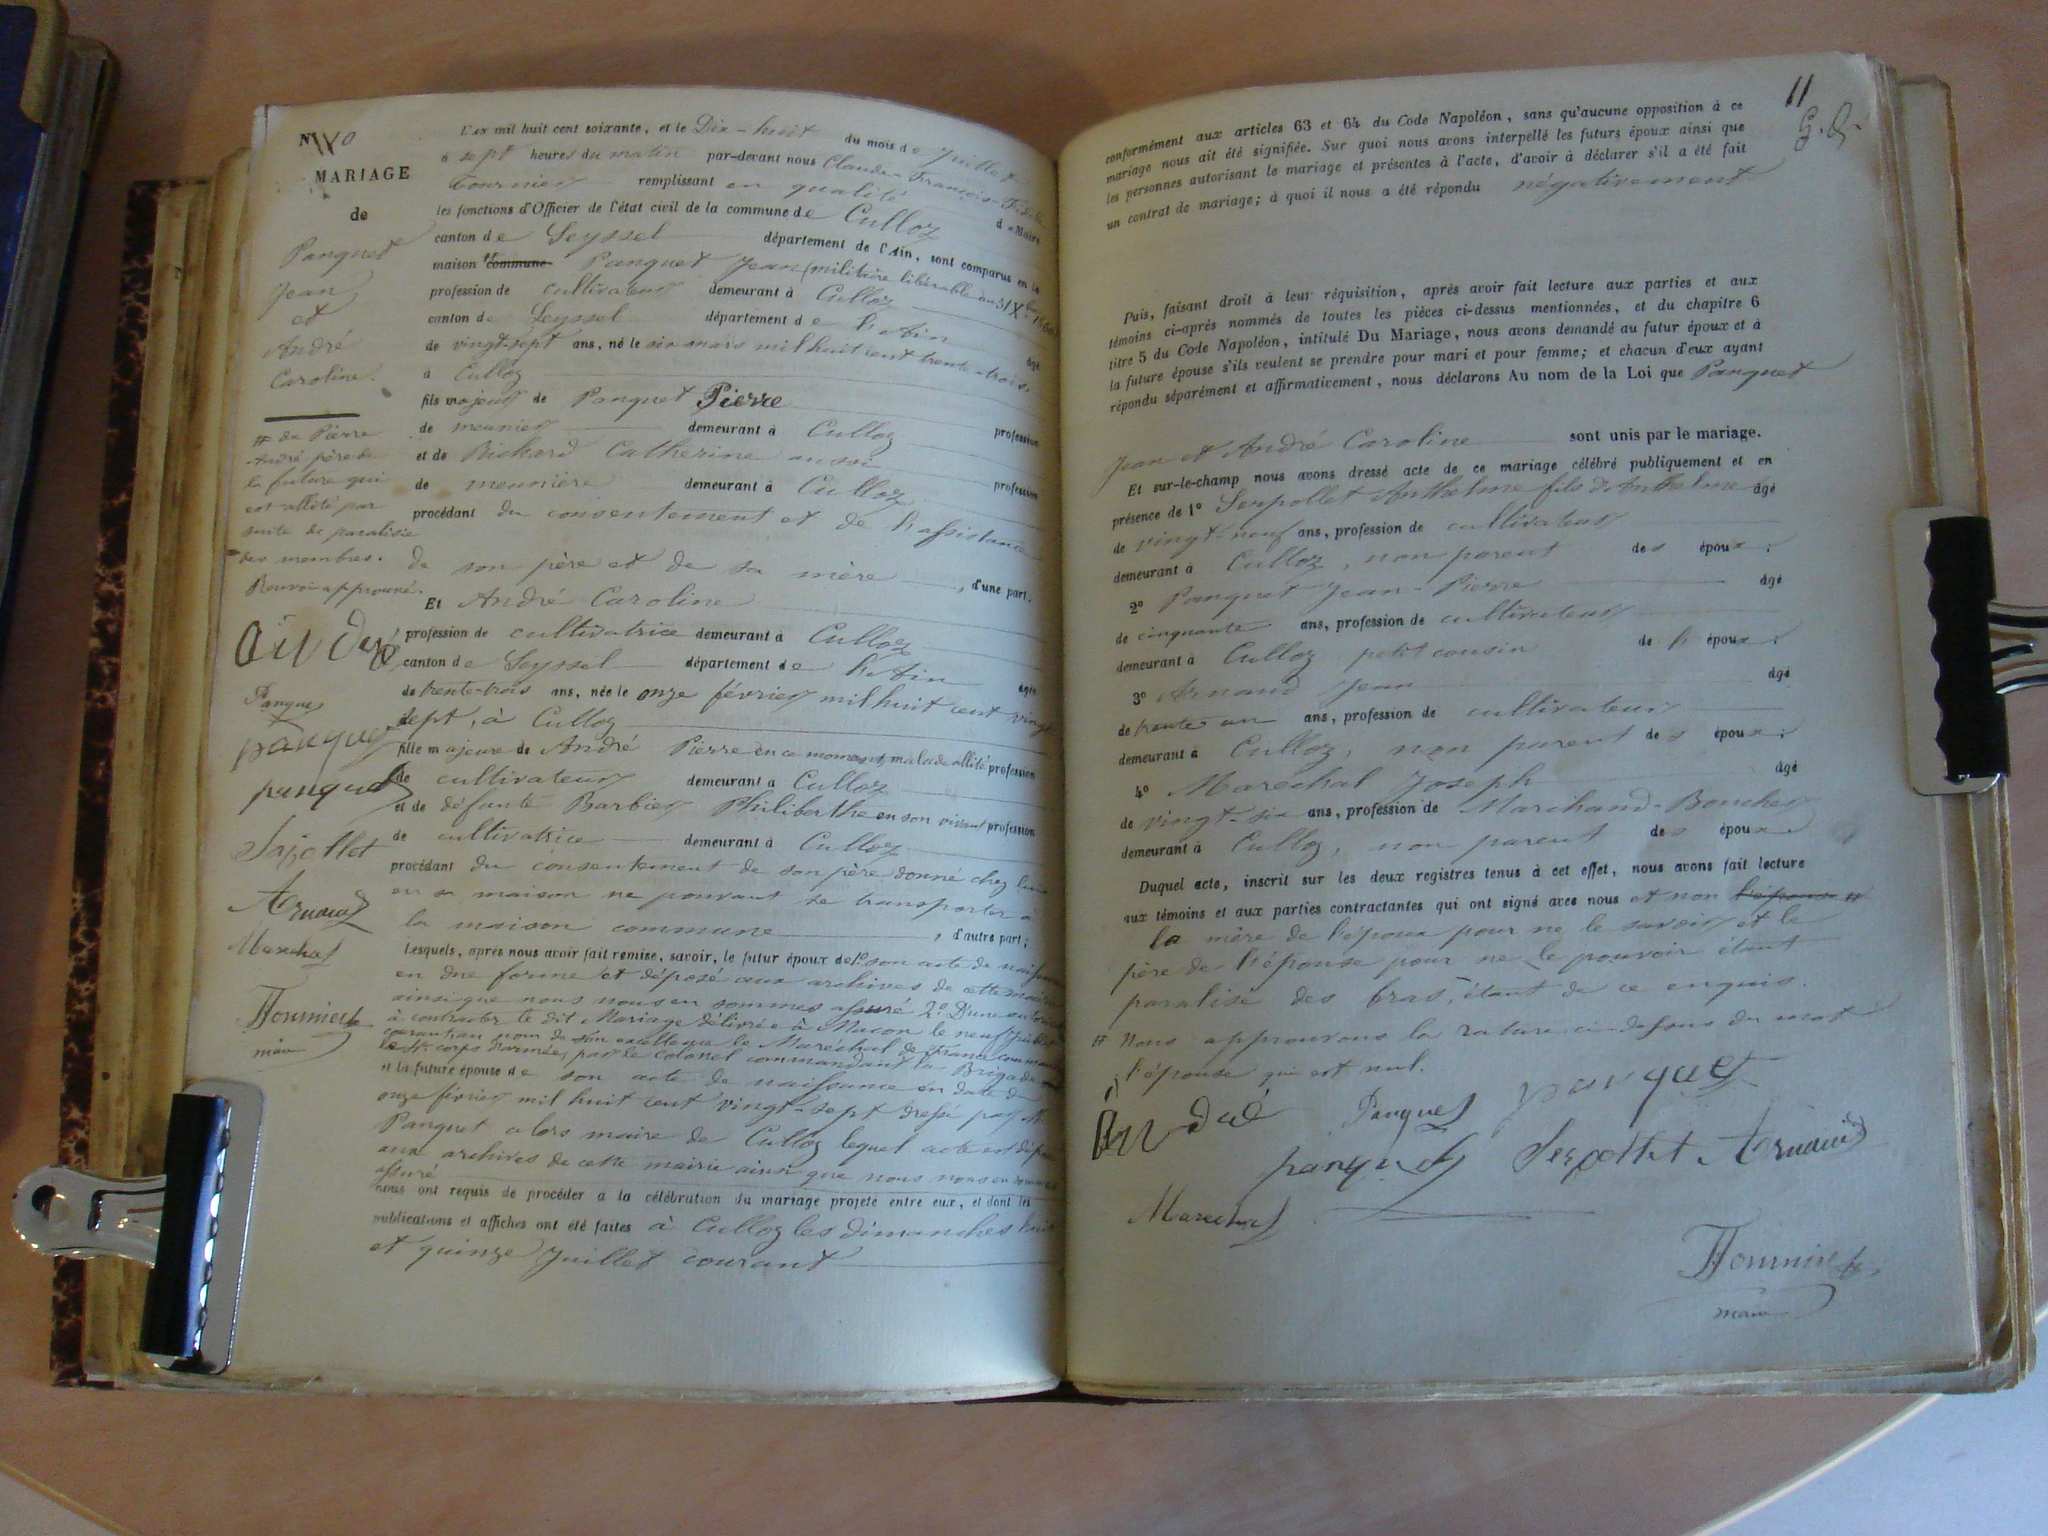 N° 10
MARIAGE
de
Panquet
Jean
et
André
Caroline.
# du Pierre
André père de
la future qui
est allité par
suite de paralisie
des membres.
Renvoi approuvé.
André
Panquet
panquet
panquet
Serpollet
Arnaud
Marechal
Fournier
maire
L'an mil huit cent soixante, et le Dix-huit du mois de Juillet
à sept heures du matin par-devant nous Claude-François-Fidèle
Fournier remplissant en qualité de Maire
les fonctions d'Officier de l'état civil de la commune de Culloz
canton de Seyssel département de l'Ain, sont comparus en la
maison commune Panquet Jean (militaire libérable au 31 Xbre 1860
profession de cultivateur demeurant à Culloz
canton de Seyssel département de l'Ain âgé
de vingt-sept ans, né le six mars mil huit cent trente-trois,
à Culloz
fils majeur de Panquet Pierre profession
de meunier demeurant à Culloz
et de Richard Catherine aussi profession
de meunière demeurant à Culloz
procédant du consentement et de l'assistance
de son père et de sa mère, d'une part.
Et André Caroline
profession de cultivatrice demeurant à Culloz
canton de Seyssel département de l'Ain âgée
de trente-trois ans, née le onze février mil huit cent vingt
sept, à Culloz
fille majeure de André Pierre en ce moment malade allité profession
de cultivateur demeurant à Culloz
et de défunte Barbier Philiberthe en son vivant profession
de cultivatrice demeurant à Culloz
procédant du consentement de son père donné chez lui
en sa maison ne pouvant se transporter à
la maison commune, d'autre part;
Lesquels, après nous avoir fait remise, savoir, le futur époux de 1° son acte de naissance
en due forme et déposé aux archives de cette mairie
ainsi que nous nous en sommes assuré 2° D'une autorisation
à contracter le dit Mariage délivrée à Macon le neuf juillet
courant au nom de son excellence le Maréchal de France commandant
le 4e corps d'armée, par le colonel commandant la Brigade
et la future épouse de son acte de naissance en date du
onze février mil huit cent vingt-sept dressé par Mr
Panquet alors maire de Culloz lequel acte est déposé
aux archives de cette mairie ainsi que nous nous en sommes
assuré
nous ont requis de procéder à la célébration du mariage projeté entre eux, et dont les
publications et affiches ont été faites à Culloz les dimanches huit
et quinze Juillet courant
11
conformément aux articles 63 et 64 du Code Napoléon, sans qu'aucune opposition à ce
mariage nous ait été signifiée. Sur quoi nous avons interpellé les futurs époux ainsi que
les personnes autorisant le mariage et présentes à l'acte, d'avoir à déclarer s'il a été fait
un contrat de mariage; à quoi il nous a été répondu négativement
Puis, faisant droit à leur réquisition, après avoir fait lecture aux parties et aux
témoins ci-après nommés de toutes les pièces ci-dessus mentionnées, et du chapitre 6
titre 5 du Code Napoléon, intitulé Du Mariage, nous avons demandé au futur époux et à
la future épouse s'ils veulent se prendre pour mari et pour femme; et chacun d'eux ayant
répondu séparément et affirmativement, nous déclarons Au nom de la Loi que Panquet
Jean et André Caroline sont unis par le mariage.
Et sur-le-champ nous avons dressé acte de ce mariage célébré publiquement et en
présence de 1° Serpollet Anthelme fils d'Anthelme âgé
de vingt-neuf ans, profession de cultivateur
demeurant à Culloz, non parent des époux;
2° Panquet Jean-Pierre âgé
de cinquante ans, profession de cultivateur
demeurant à Culloz petit cousin de l'époux;
3° Arnaud Jean âgé
de trente un ans, profession de cultivateur
demeurant à Culloz, non parent des époux;
4° Maréchal Joseph âgé
de vingt-six ans, profession de Marchand-Boucher
demeurant à Culloz, non parent des époux.
Duquel acte, inscrit sur les deux registres tenus à cet effet, nous avons fait lecture
aux témoins et aux parties contractantes qui ont signé avec nous et non l'épouse #
la mère de l'époux pour ne le savoir et le
père de l'épouse pour ne le pouvoir étant
paralisé des bras, étant de ce enquis.
# Nous approuvons la rature ci-dessus du mot
l'épouse qui est nul.
André Panquet panquet
panquet Serpollet Arnaud
Marechal
Fournier
maire